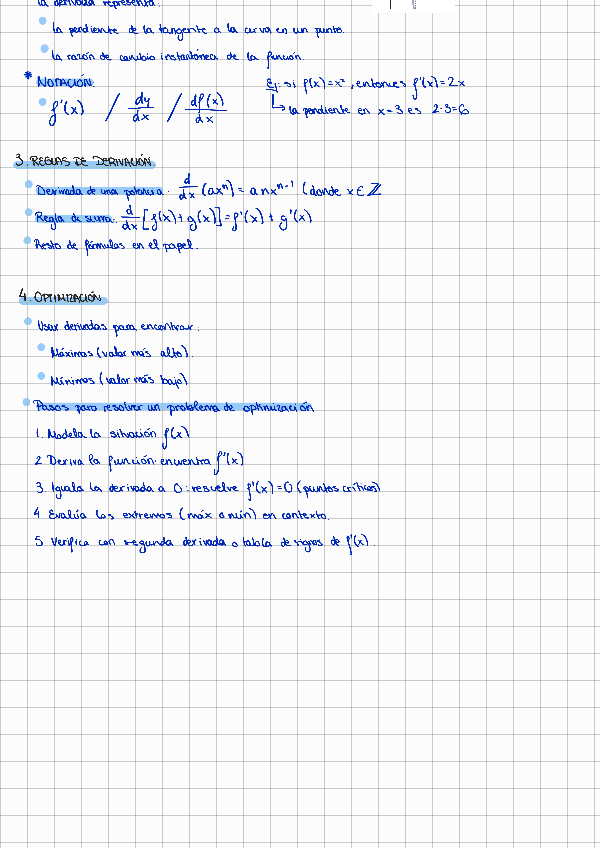 la derivada representa:
• La pendiente de la tangente a la curva en un punto.
• La razón de cambio instantánea de la función.
* NOTACIÓN:
• f'(x) / dy/dx / df(x)/dx
Ej: si f(x)=x², entonces f'(x)=2x
↳ la pendiente en x=3 es 2·3=6
3. REGLAS DE DERIVACIÓN
• Derivada de una potencia: d/dx (axⁿ) = anxⁿ⁻¹ (donde x∈ℤ
• Regla de suma: d/dx [f(x)+g(x)] = f'(x) + g'(x)
• Resto de fórmulas en el papel.
4. OPTIMIZACIÓN
• Usar derivadas para encontrar:
• Máximos (valor más alto).
• Mínimos (valor más bajo)
• Pasos para resolver un problema de optimización
1. Modela la situación f(x)
2. Deriva la función: encuentra f'(x)
3. Iguala la derivada a 0: resuelve f'(x)=0 (puntos críticos)
4. Evalúa los extremos (máx o mín) en contexto.
5. Verifica con segunda derivada o tabla de signos de f'(x).